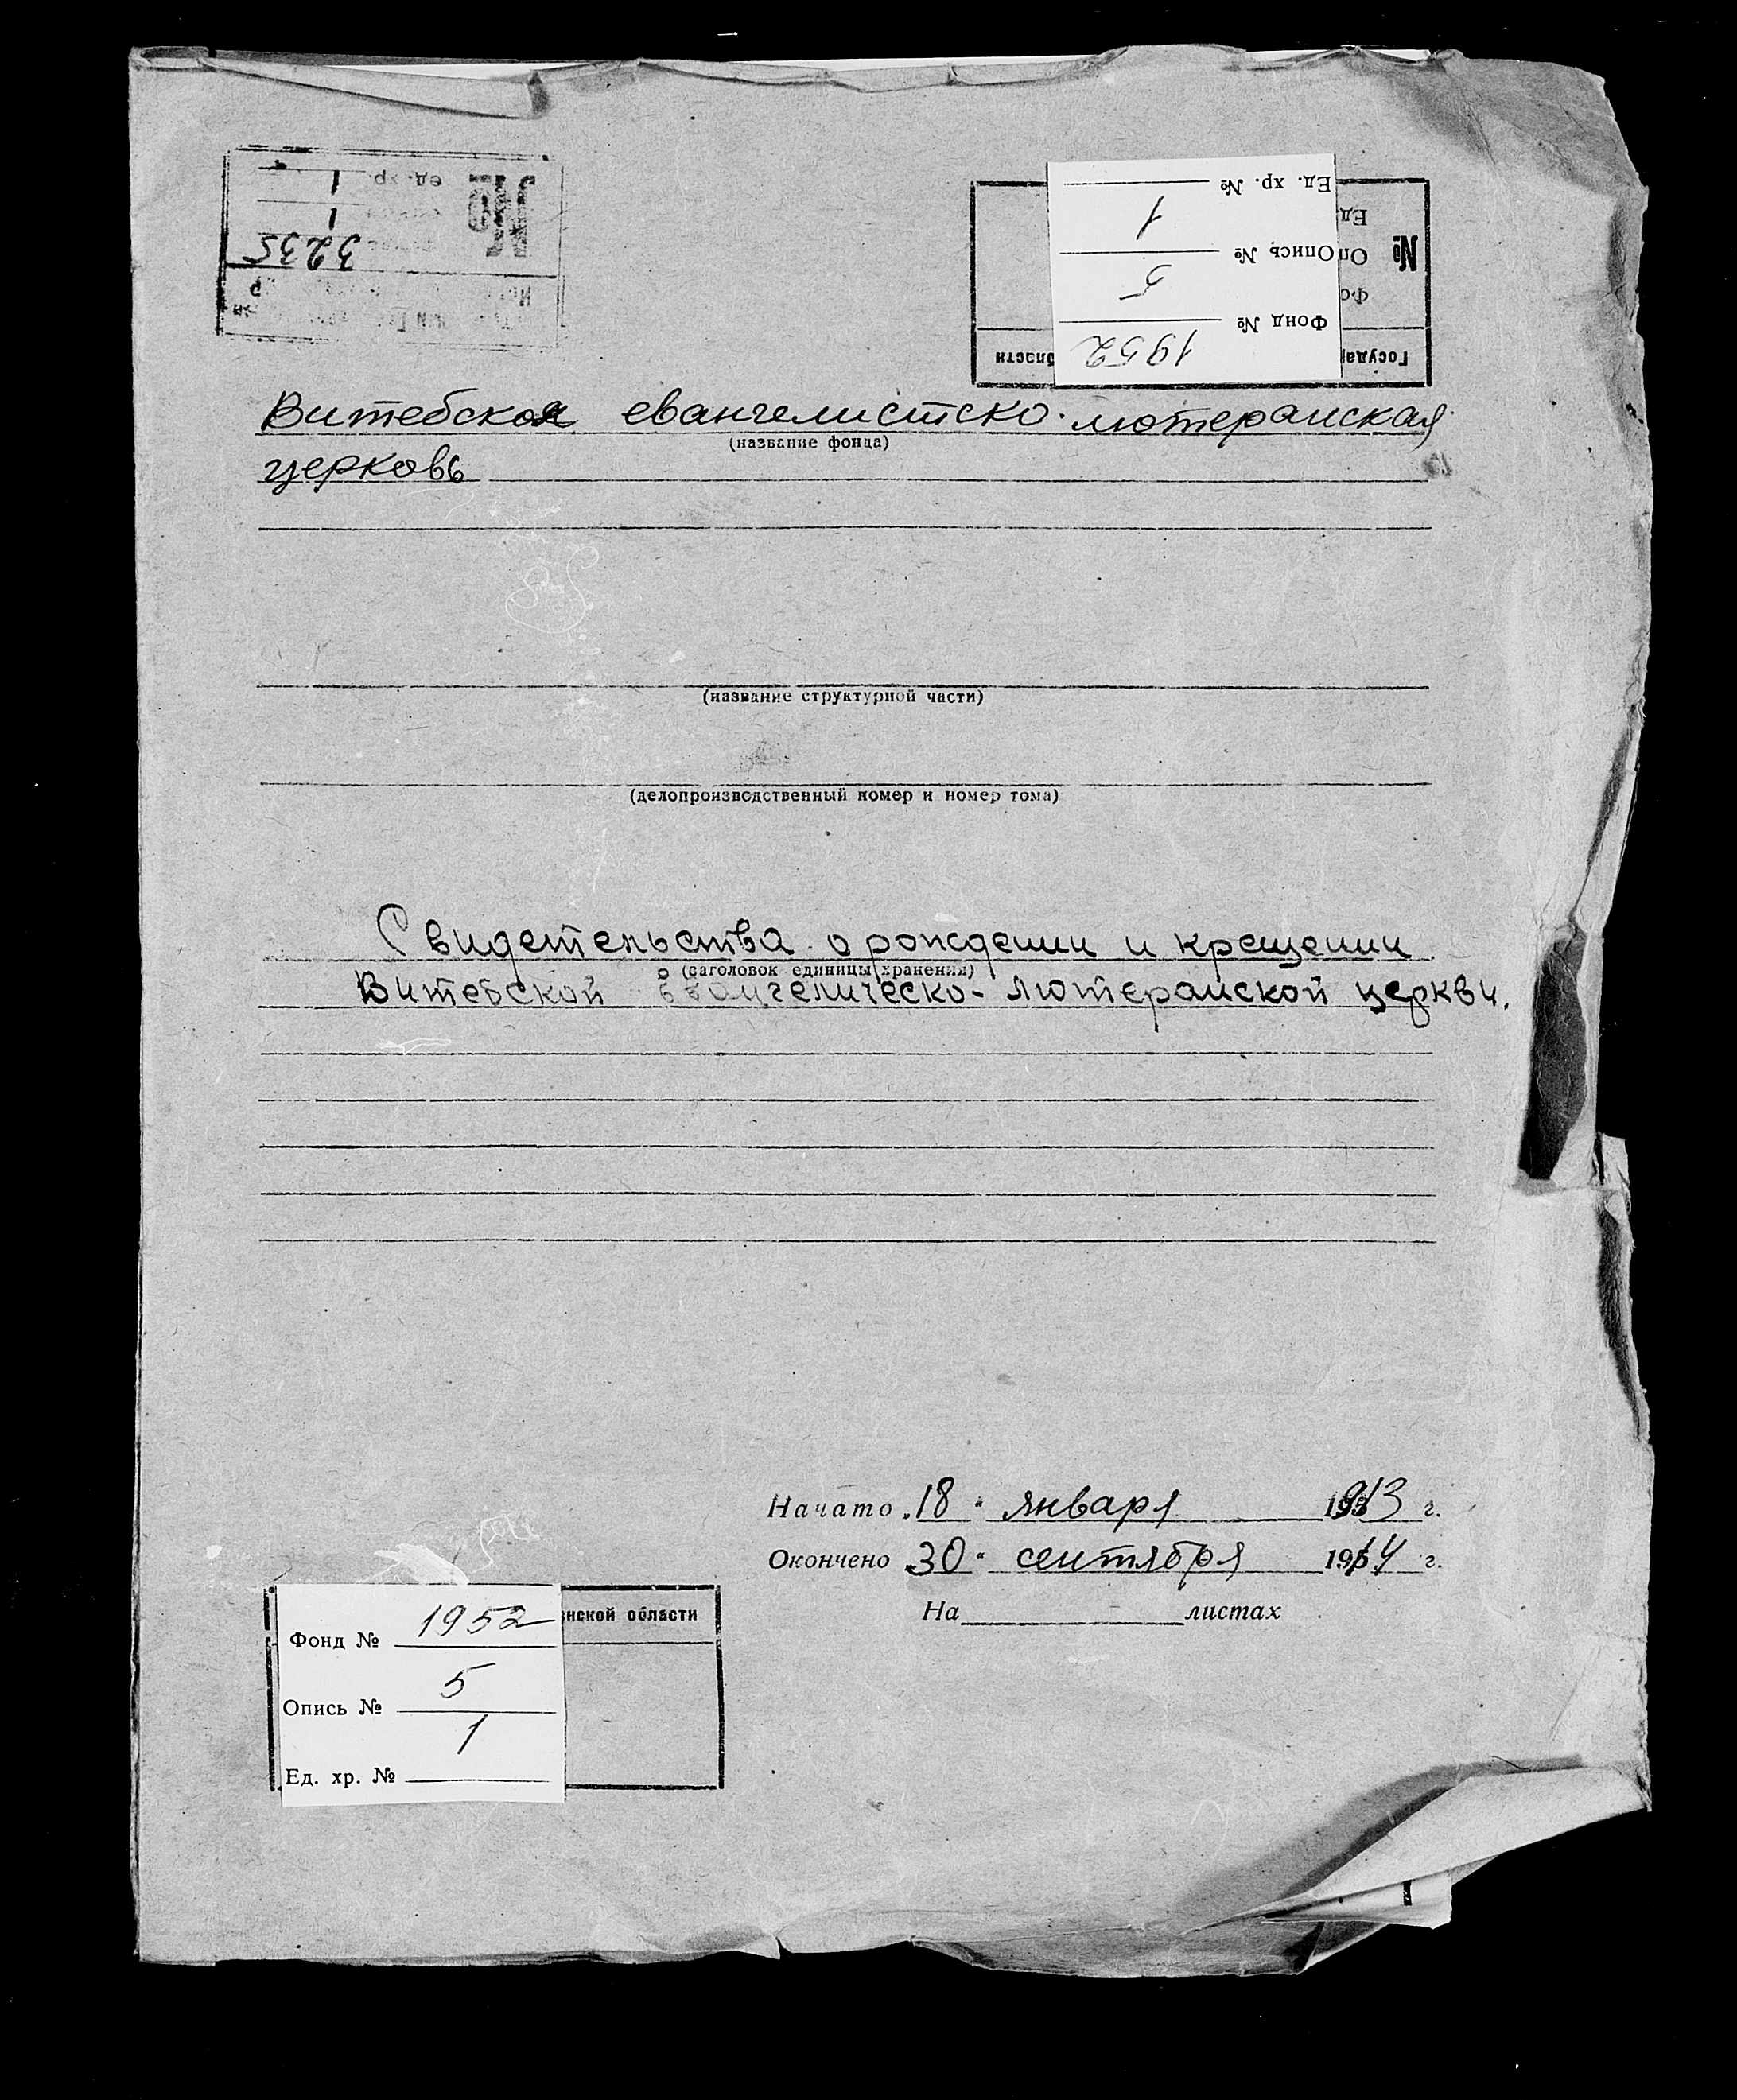 №
ед. хр. 1
1
3235
Ед. хр. №
1
Опись №
5
Фонд №
1952
Ед
Оп
Фо
№
Государ бласти
Витебская евангелистско-лютеранская
(название фонда)
церковь
(название структурной части)
(делопроизводственный номер и номер тома)
Свидетельства о рождении и крещении
(заголовок единицы хранения)
Витебской Евангелическо-лютеранской церкви.
Начато „18“ января 1913 г.
Окончено „30“ сентября 1914 г.
На листах
нской области
Фонд № 1952
Опись № 5
1
Ед. хр. №